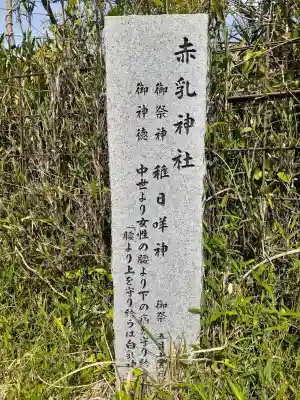 赤乳神社
御祭神 稚日咩神 御祭 五月
御神德 中世より女性の腰より下の病を守り給
「腰より上を守り給うは白乳神